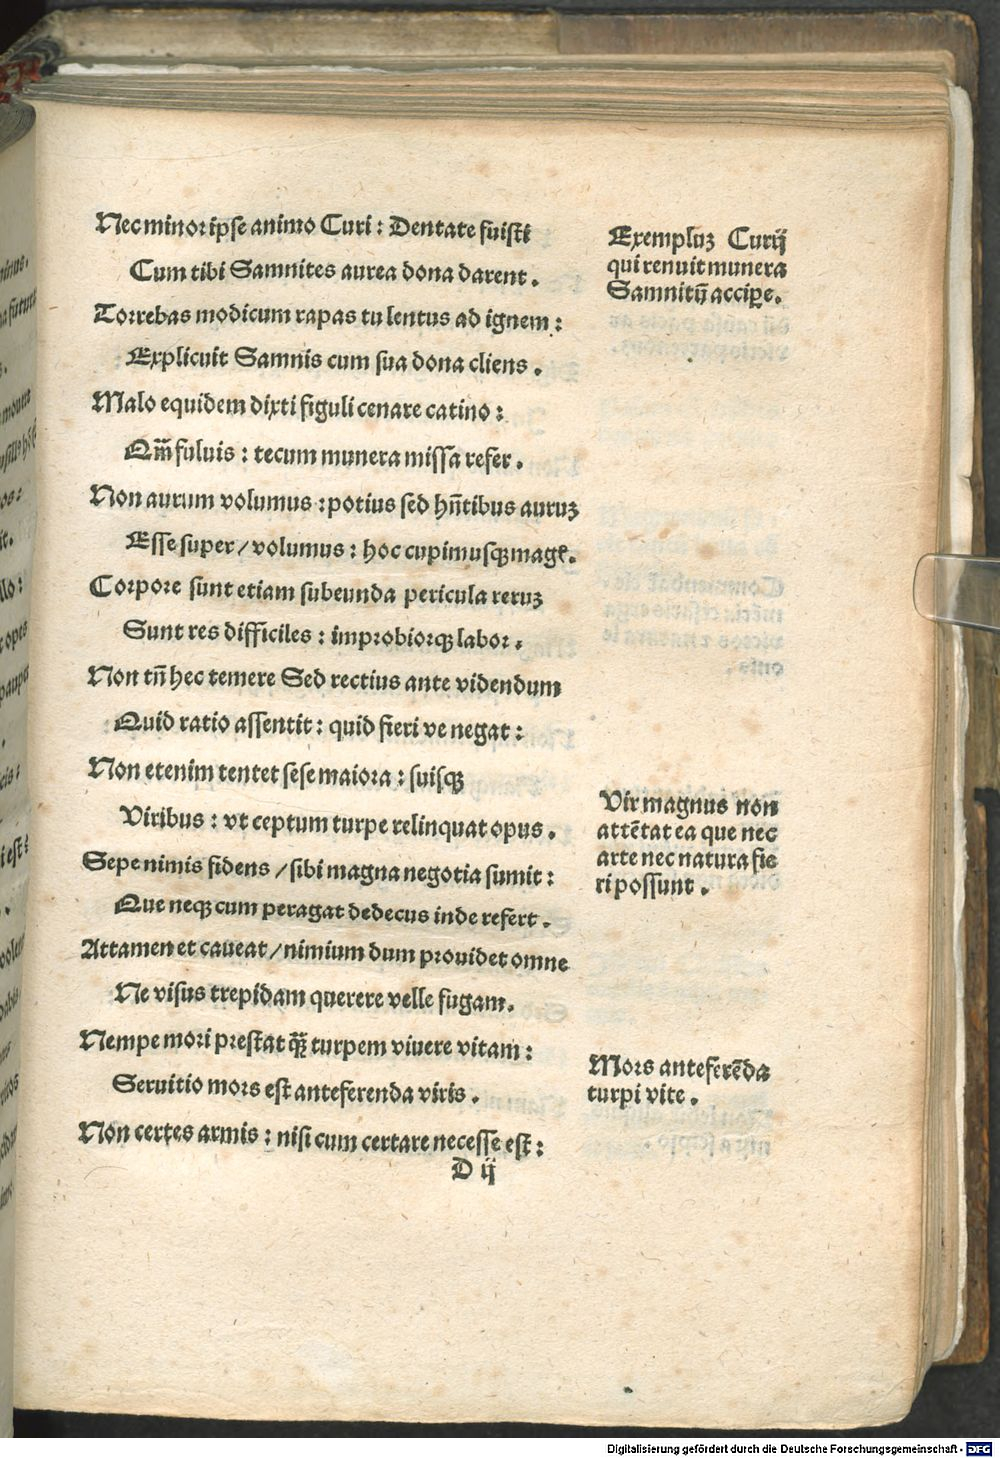 Nec minor ipse animo Curi : Dentate fuisti
Cum tibi Samnites aurea dona darent .
Torrebas modicum rapas tu lentus ad ignem :
Explicuit Samnis cum sua dona cliens .
Malo equidem dixti figuli cenare catino :
Qm̄ fuluis : tecum munera missa refer .
Non aurum volumus : potius sed hn̄tibus auruꝫ
Esse super / volumus : hoc cupimusqꝫ mage .
Corpore sunt etiam subeunda pericula reruꝫ
Sunt res difficiles : improbiorqꝫ labor .
Non tn̄ hec temere Sed rectius ante videndum
Quid ratio assentit : quid fieri ve negat :
Non etenim tentet sese maiora : suisqꝫ
Viribus : vt ceptum turpe relinquat opus .
Sepe nimis fidens / sibi magna negotia sumit :
Que neqꝫ cum peragat dedecus inde refert .
Attamen et caueat / nimium dum prouidet omne
Ne visus trepidam querere velle fugam .
Nempe mori prestat qꝫ̄ turpem viuere vitam :
Seruitio mors est anteferenda viris .
Non certes armis : nisi cum certare necesse est :
D ij
Exempluꝫ Curij
qui renuit munera
Samnitū accipe .
Vir magnus non
attētat ea que nec
arte nec natura fie
ri possunt .
Mors anteferēda
turpi vite .
Digitalisierung gefördert durch die Deutsche Forschungsgemeinschaft - DFG